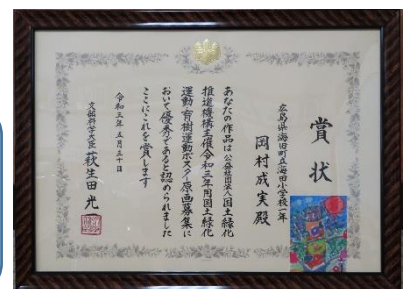 賞状
広島県海田町立海田小学校一年
岡村成実殿
あなたの作品は公益社団法人国土緑化
推進機構主催令和三年用国土緑化
運動・育樹運動ポスター原画募集に
おいて優秀であると認められました
ここにこれを賞します
令和三年五月三十日
文部科学大臣 萩生田光一